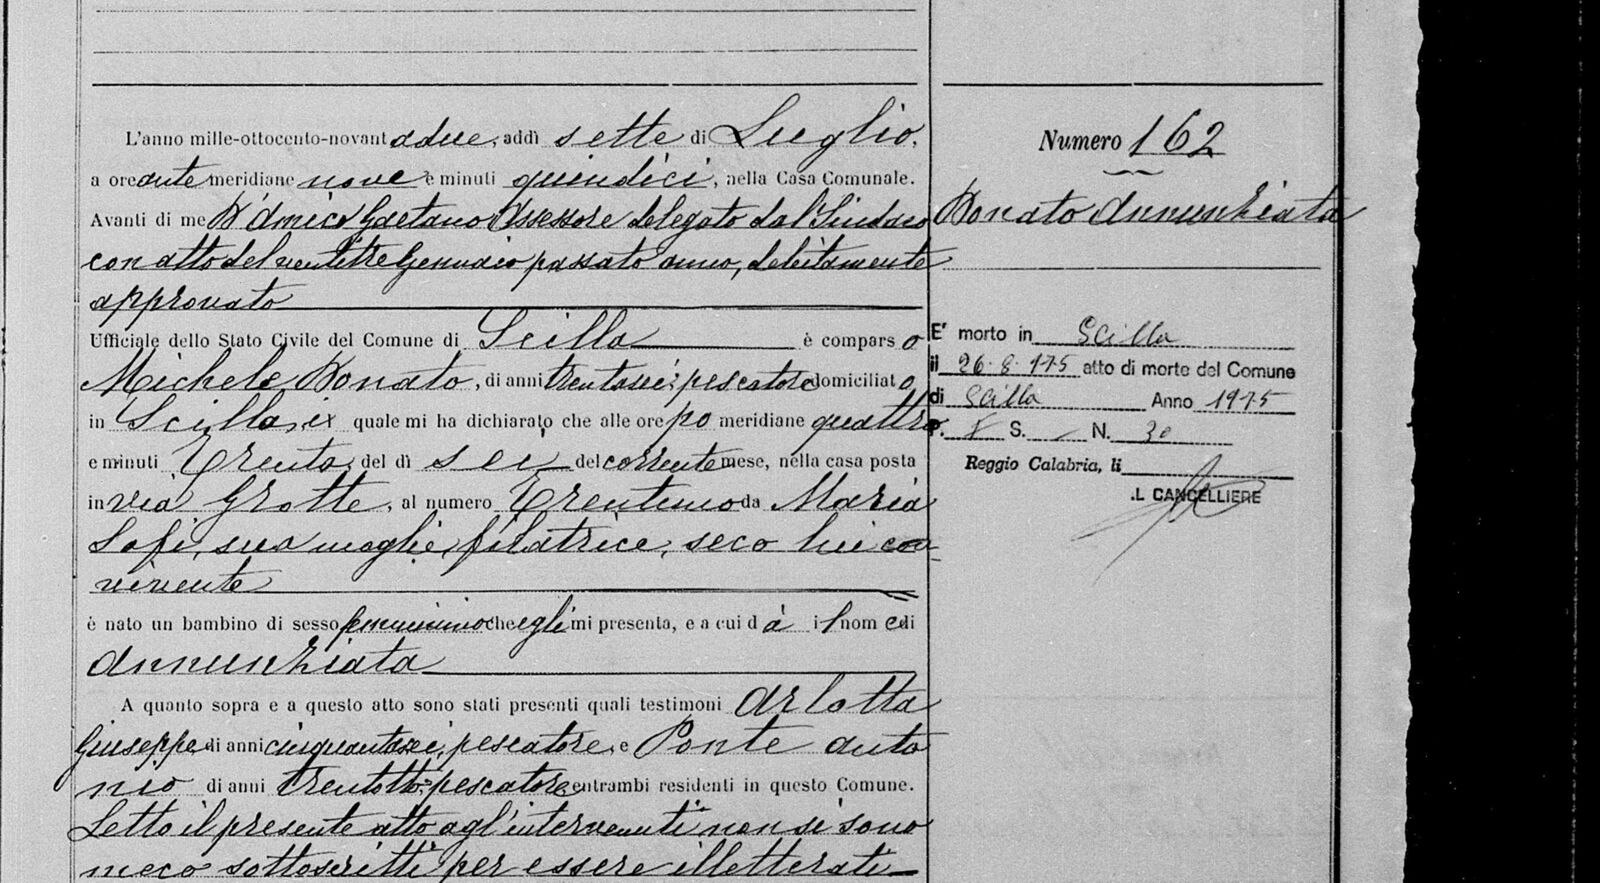 L'anno mille-ottocento-novantadue, addì sette di Luglio,
a ore ante meridiane nove e minuti quindici, nella Casa Comunale.
Avanti di me D'Amico Gaetano Assessore delegato dal Sindaco
con atto del ventitre Gennaio passato anno, debitamente
approvato
Ufficiale dello Stato Civile del Comune di Scilla è comparso
Michele Donato, di anni trentasei, pescatore domiciliato
in Scilla, il quale mi ha dichiarato che alle ore po meridiane quattro
e minuti trenta, del dì sei del corrente mese, nella casa posta
in via Grotte, al numero Trentuno da Maria
Sofi, sua moglie, filatrice, seco lui con
vivente
è nato un bambino di sesso femminino che egli mi presenta, e a cui dà il nome di
Annunziata
A quanto sopra e a questo atto sono stati presenti quali testimoni Arlotta
Giuseppe di anni cinquantasei, pescatore, e Ponte Anto
nio di anni trentotto, pescatore, entrambi residenti in questo Comune.
Letto il presente atto agl'intervenuti, non si sono
meco sottoscritti per essere illetterati
Numero 162
Donato Annunziata
E' morto in Scilla
il 26.8.1975 atto di morte del Comune
di Scilla Anno 1975
P. I S. - N. 30
Reggio Calabria, lì
IL CANCELLIERE